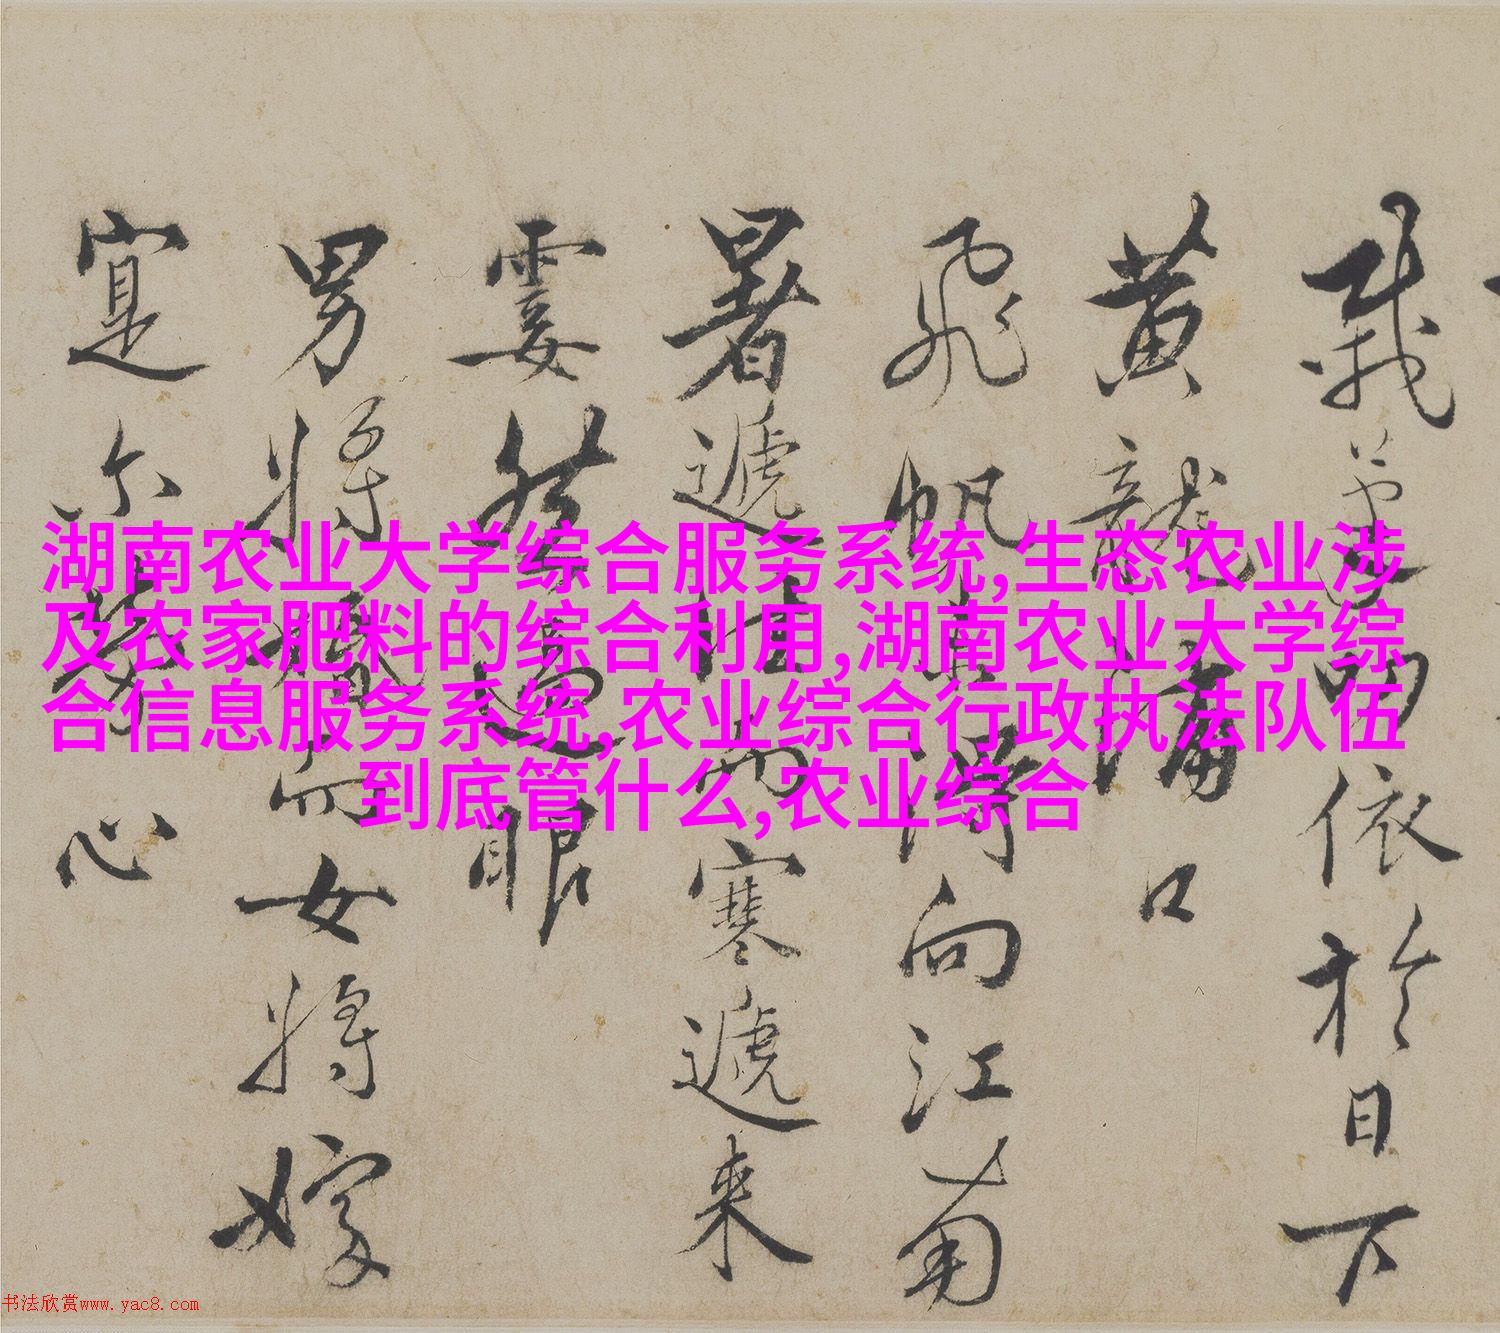 載筆依於日下
黃龍浦口
飛帆向江南
暑遞往而寒遞來
霎然過眼
男將婚而女將嫁
寔尒勞心
湖南农业大学综合服务系统,生态农业涉
及农家肥料的综合利用,湖南农业大学综
合信息服务系统,农业综合行政执法队伍
到底管什么,农业综合
书法欣赏www.yac8.com